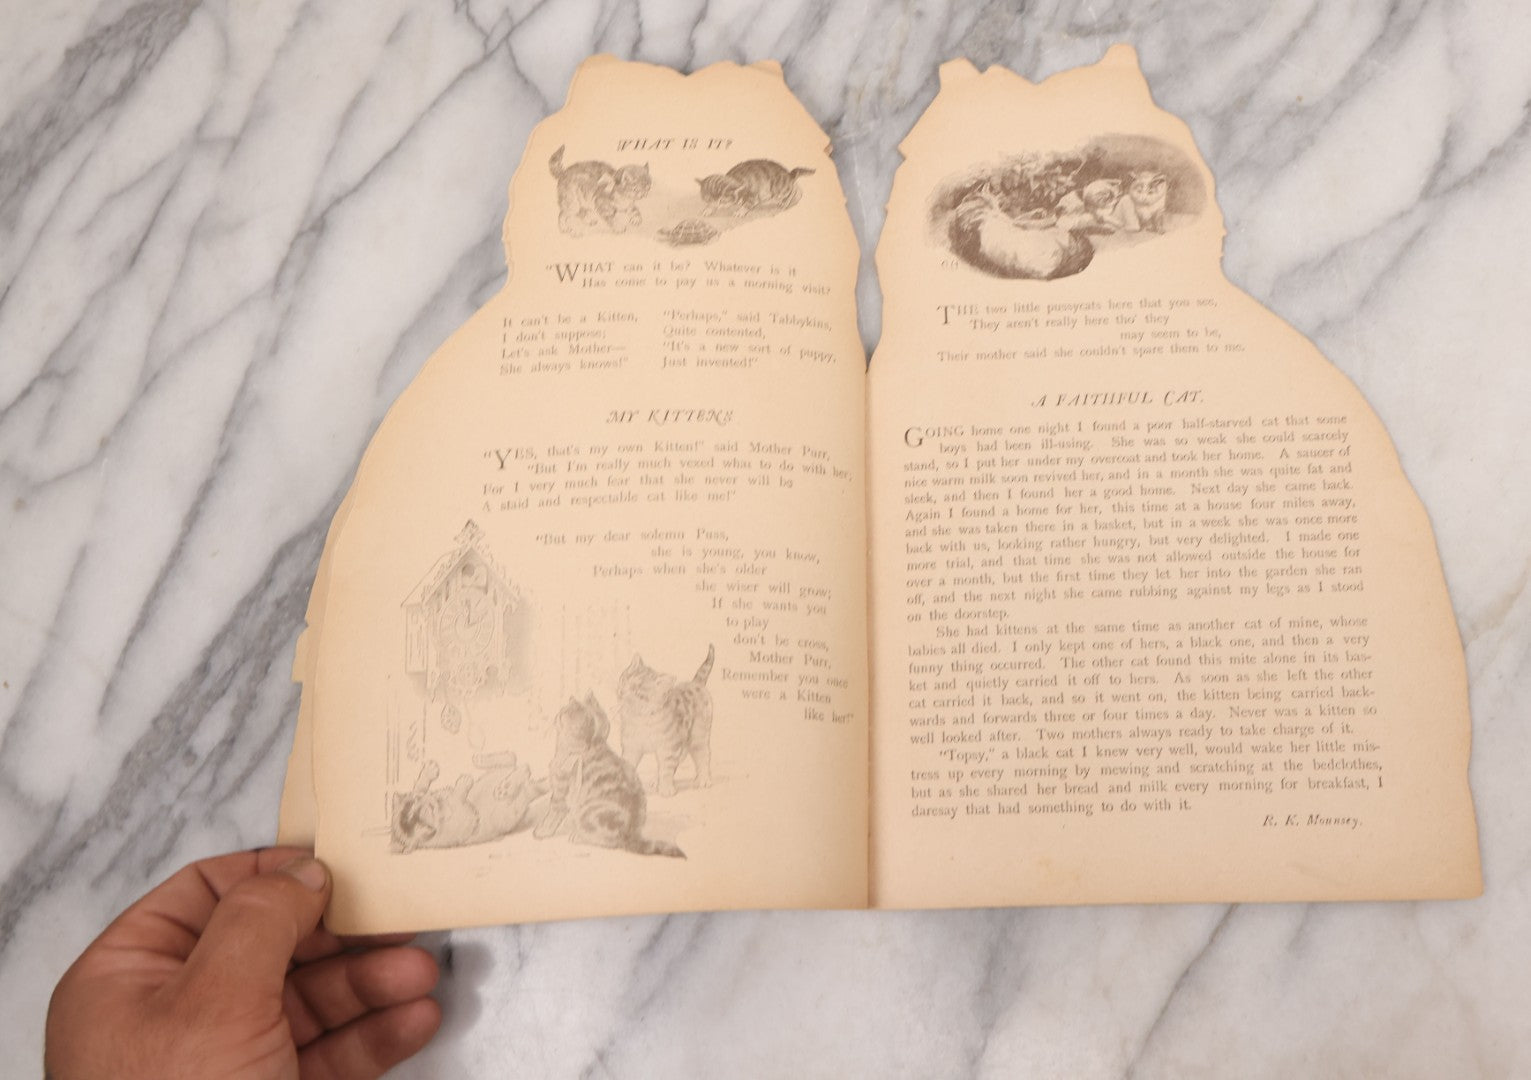 WHAT IS IT?
"WHAT can it be? Whatever is it
Has come to pay us a morning visit?
It can't be a Kitten,
I don't suppose;
Let's ask Mother—
She always knows!"
"Perhaps," said Tabbykins,
Quite contented,
"It's a new sort of puppy,
Just invented!"
MY KITTENS
"YES, that's my own Kitten!" said Mother Purr,
"But I'm really much vexed what to do with her;
For I very much fear that she never will be
A staid and respectable cat like me!"
"But my dear solemn Puss,
she is young, you know,
Perhaps when she's older
she wiser will grow;
If she wants you
to play
don't be cross,
Mother Purr,
Remember you once
were a Kitten
like her!"
THE two little pussycats here that you see,
They aren't really here tho' they
may seem to be,
Their mother said she couldn't spare them to me.
A FAITHFUL CAT.
GOING home one night I found a poor half-starved cat that some
boys had been ill-using. She was so weak she could scarcely
stand, so I put her under my overcoat and took her home. A saucer of
nice warm milk soon revived her, and in a month she was quite fat and
sleek, and then I found her a good home. Next day she came back.
Again I found a home for her, this time at a house four miles away,
and she was taken there in a basket, but in a week she was once more
back with us, looking rather hungry, but very delighted. I made one
more trial, and that time she was not allowed outside the house for
over a month, but the first time they let her into the garden she ran
off, and the next night she came rubbing against my legs as I stood
on the doorstep.
She had kittens at the same time as another cat of mine, whose
babies all died. I only kept one of hers, a black one, and then a very
funny thing occurred. The other cat found this mite alone in its bas-
ket and quietly carried it off to hers. As soon as she left the other
cat carried it back, and so it went on, the kitten being carried back-
wards and forwards three or four times a day. Never was a kitten so
well looked after. Two mothers always ready to take charge of it.
"Topsy," a black cat I knew very well, would wake her little mis-
tress up every morning by mewing and scratching at the bedclothes,
but as she shared her bread and milk every morning for breakfast, I
daresay that had something to do with it.
R. K. Mounsey.